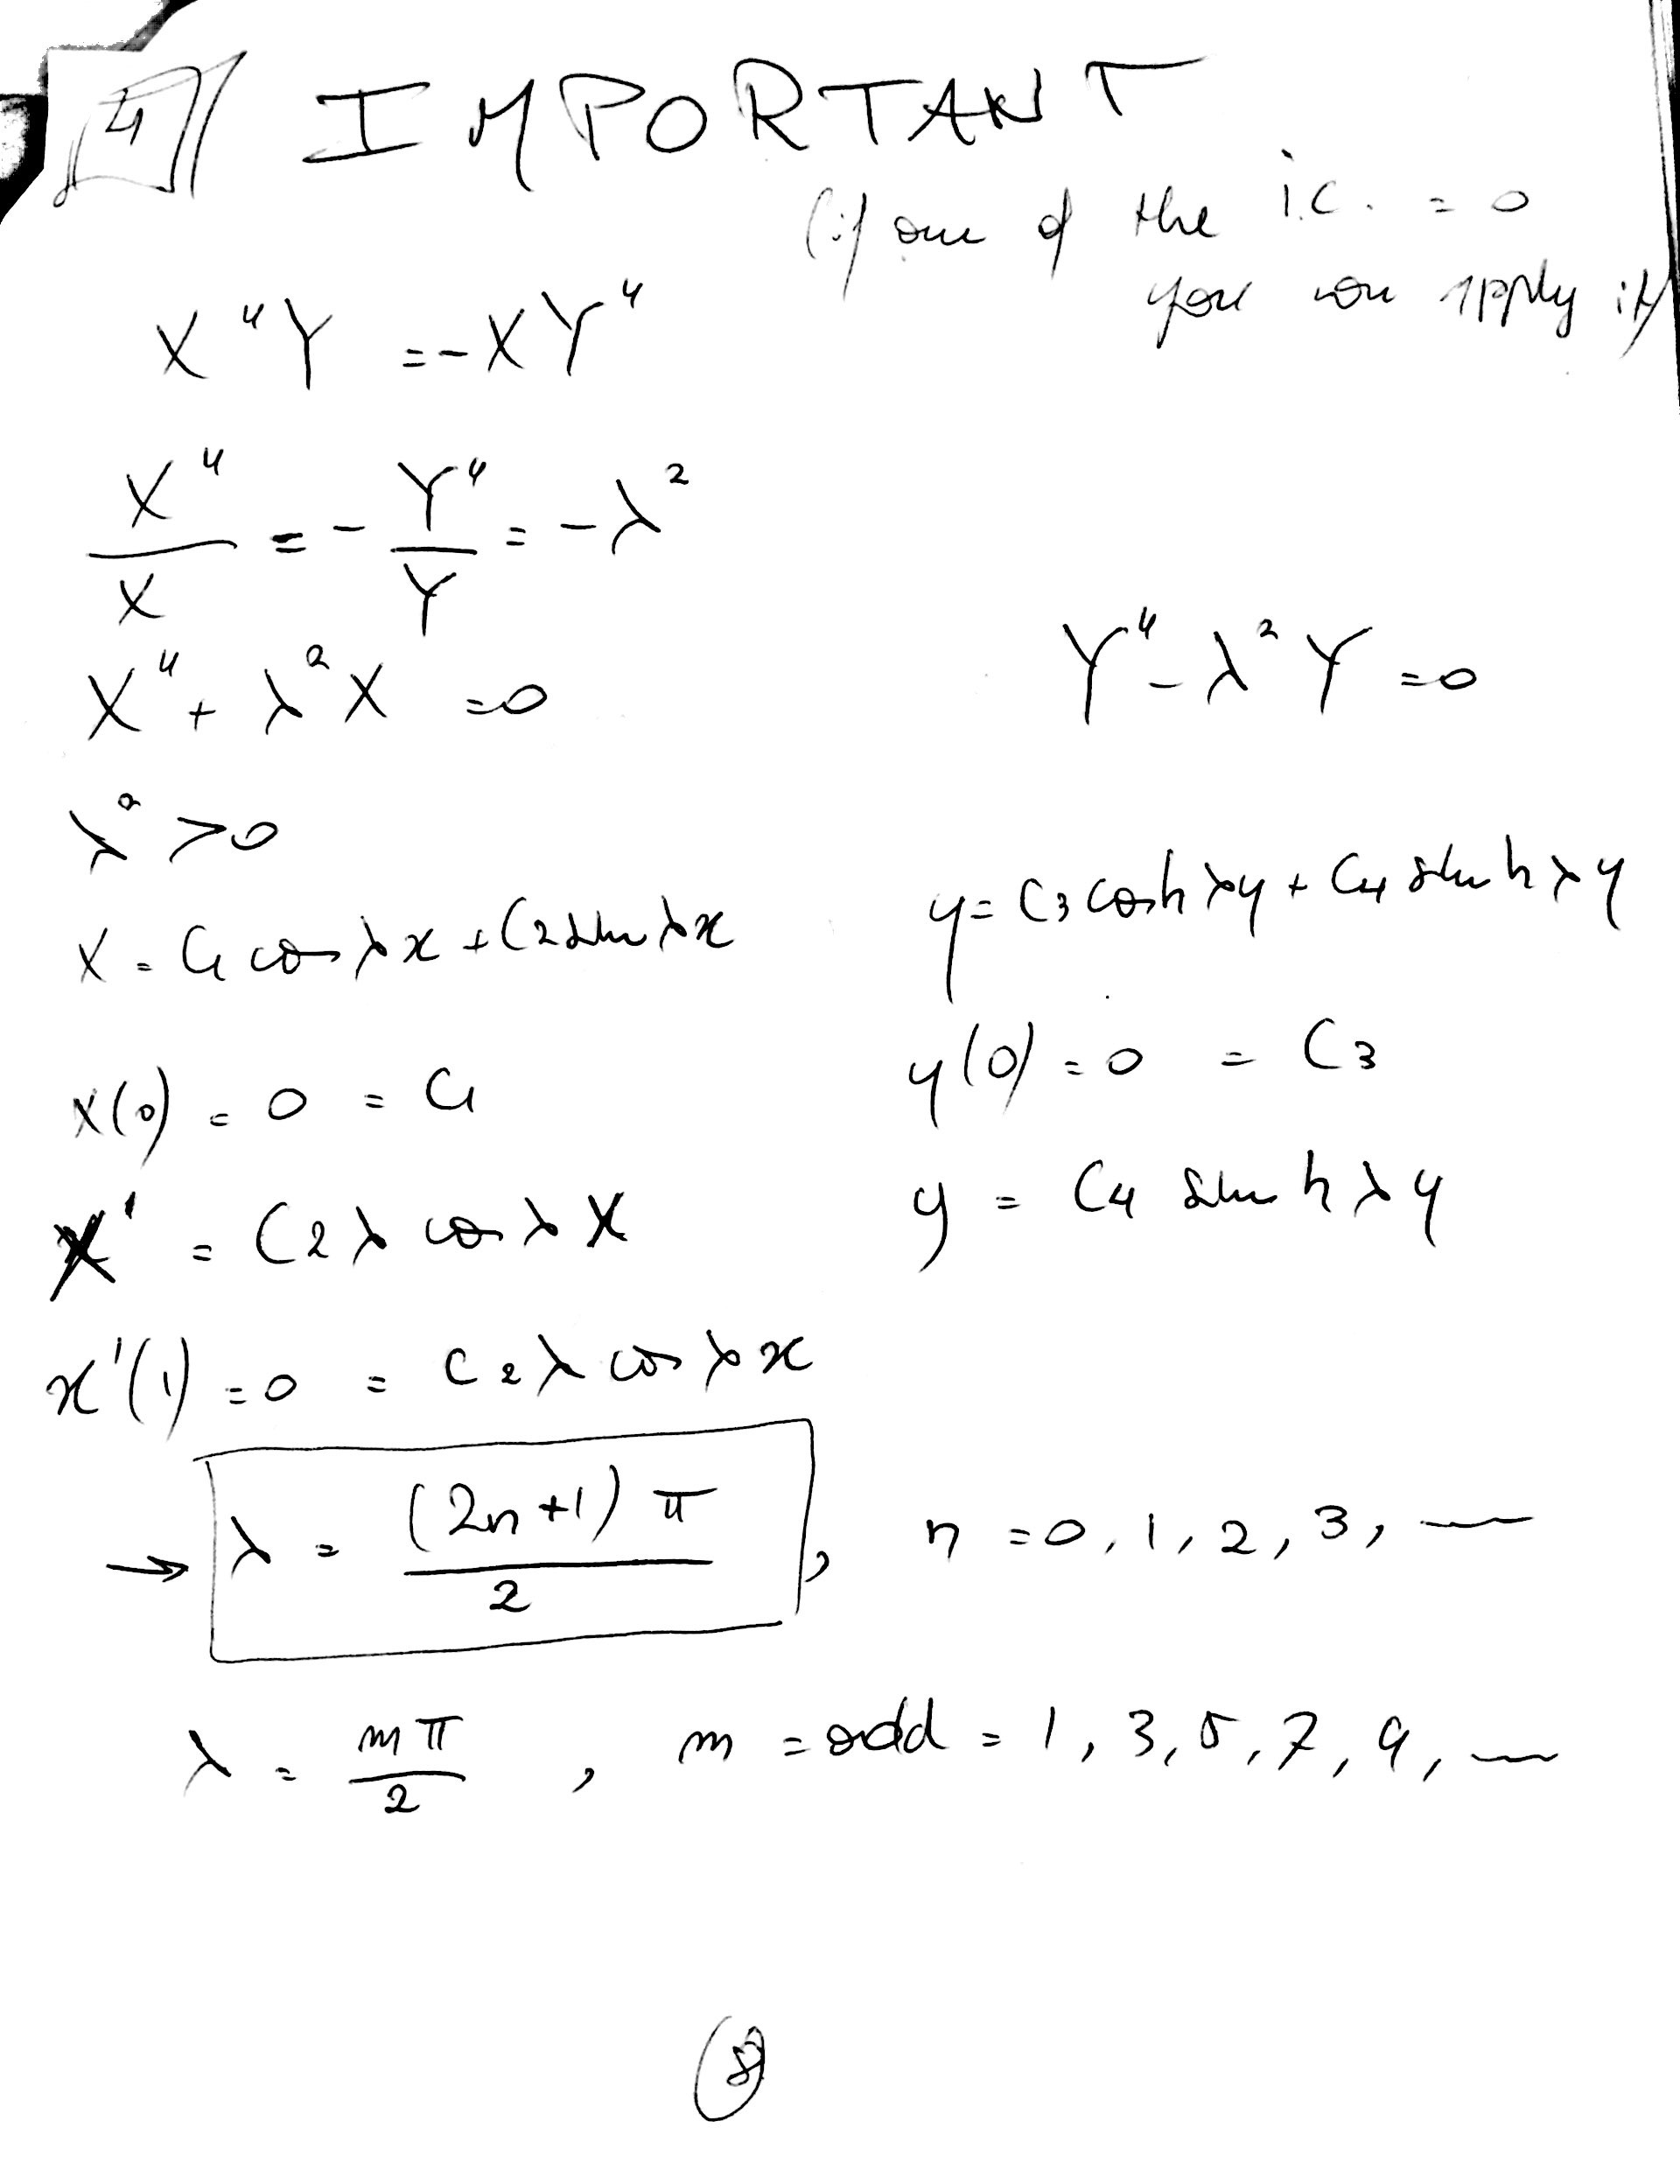 4 IMPORTANT
(if one of the i.c. = 0
you can apply it)
X"Y = -XY"
X"/X = - Y"/Y = -λ²
X" + λ²X = 0
Y" - λ²Y = 0
λ² > 0
X = C1 cos λx + C2 sin λx
y = C3 cosh λy + C4 sinh λy
X(0) = 0 = C1
y(0) = 0 = C3
X' = C2 λ cos λ X
y = C4 sinh λy
x'(1) = 0 = C2 λ cos λx
→ λ = (2n+1)π/2 , n = 0, 1, 2, 3, —
λ = mπ/2 , m = odd = 1, 3, 5, 7, 9, —
8